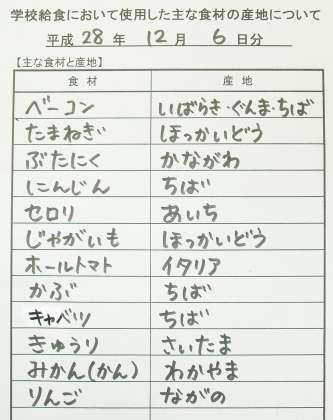 学校給食において使用した主な食材の産地について
平成 28 年 12 月 6 日分
【主な食材と産地】
食材 産地
ベーコン いばらき・ぐんま・ちば
たまねぎ ほっかいどう
ぶたにく かながわ
にんじん ちば
セロリ あいち
じゃがいも ほっかいどう
ホールトマト イタリア
かぶ ちば
キャベツ ちば
きゅうり さいたま
みかん(かん) わかやま
りんご ながの